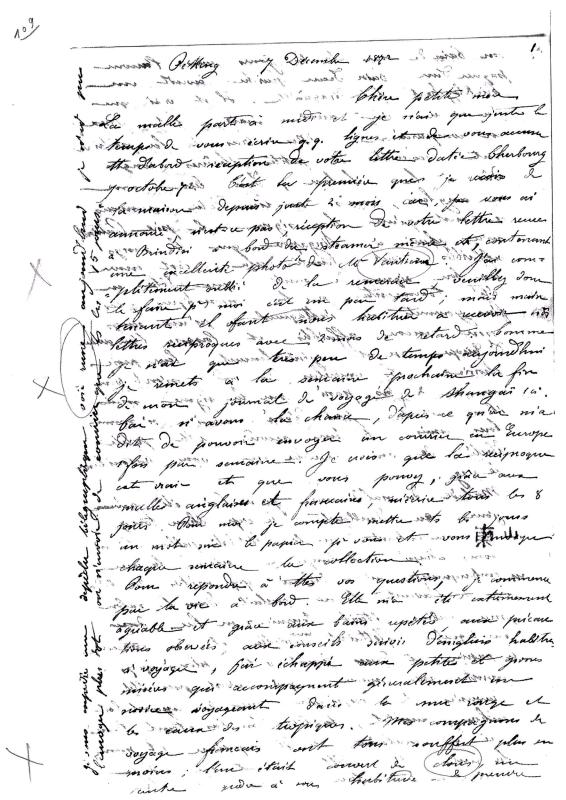 109
1.
Péking 7 Décembre 1872
Chère petite mère
La malle part à midi et je n'ai que juste le
temps de vous écrire q.q. lignes et de vous accuser
tt d'abord réception de votre lettre datée Cherbourg
octobre 72. C'est la première que je reçois de
la maison depuis juste 2 mois, car je vous ai
annoncé, n'est-ce pas, réception de votre lettre reçue
à Brindisi à bord du steamer même et contenant
une excellente photo de Mr J'ai com-
plètement oublié de la remercier, veuillez donc
le faire pr moi c'est un peu tard; mais main
tenant il faut nous habituer à recevoir nos
lettres réciproques avec 2 mois de retard. Comme
je n'ai que très peu de temps aujourdhui
je remets à la semaine prochaine la fin
de mon journal de voyage de Shangaï ici.
Car ns avons la chance, d'après ce qu'on m'a
dit de pouvoir envoyer un courrier en Europe
1 fois par semaine. Je crois que la réciproque
est vraie et que vous pouvez, grâce aux
malles anglaises et françaises, m'écrire tous les 8
jours. Pour moi je compte mettre ts les jours
un mot sur le papier pr vous et vous
chaque semaine la collection.
Pour répondre à ttes vos questions, je commence
par la vie à bord. Elle m'a été extrêmement
agréable et grâce aux bains répétés aux
tions observées aux conseils suivis d'anglais habitués
à voyager, j'ai échappé aux petites et grosses
misères qui accompagnent généralement un
novice voyageant dans la mer rouge et
les eaux des tropiques. Mes compagnons de
voyage français ont tous souffert plus ou
moins; l'un était couvert de clous, un
autre à son habitude de prendre
dépêche télégraphique reçue aujourd'hui je
l'envoyer plus tôt on m'annonce de que ts les 15 jours